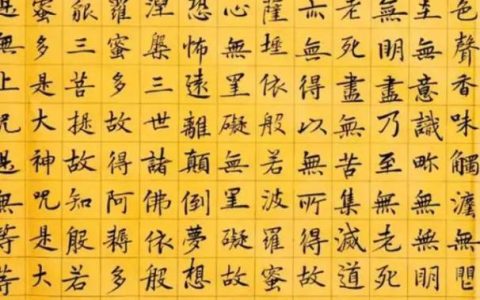 色聲香味觸灋無眼
至無意識畍無無明
無明盡乃至無老死
老死盡無苦集滅道
亦無得以無所得故
薩埵依般若波羅蜜
心無罣礙無罣礙故
恐怖遠離顛倒夢想
涅槃三世諸佛依般
羅蜜多故得阿耨多
藐三菩提故知般若
蜜多是大神咒是大
是無上咒是無等等